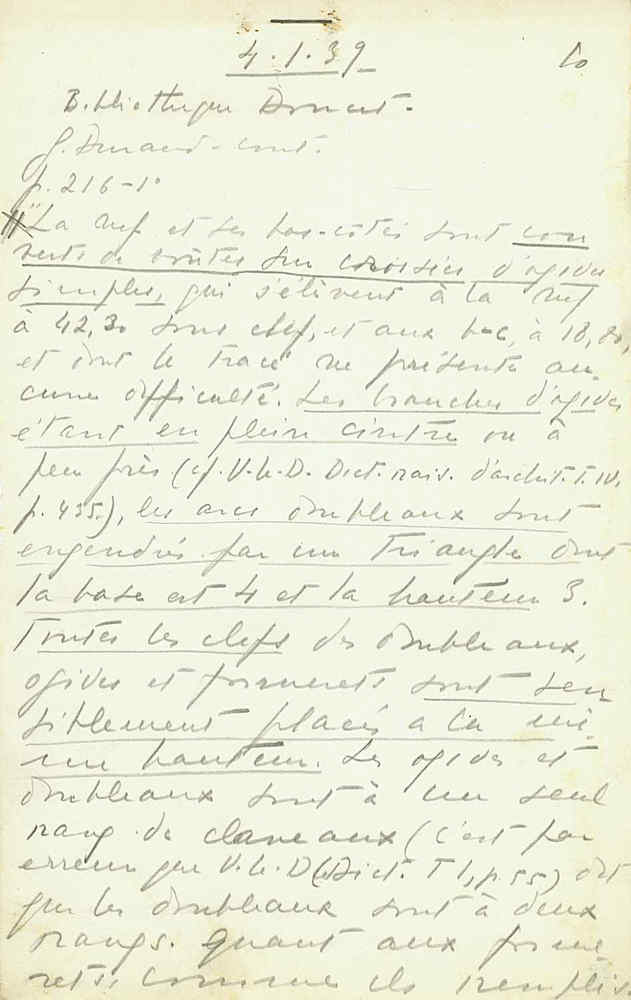 4.1.39 10
Bibliothèque Doucet.
G. Durand - cont.
p. 216 - 1°
"La nef et ses bas-côtés sont cou
verts de voûtes sur croisées d'ogives
simples, qui s'élèvent à la nef
à 42,30 sous clef, et aux b-c, à 18,80,
et dont le tracé ne présente au-
cune difficulté. Les branches d'ogives
étant en plein cintre ou à
peu près (cf. V-le-D. Dict. rais. d'archit. T. IV.
p. 435.), les arcs doubleaux sont
engendrés par un Triangle dont
la base est 4 et la hauteur 3.
Toutes les clefs des doubleaux,
ogives et formerets sont sen
siblement placés a la mê-
me hauteur. Les ogives et
doubleaux sont à un seul
rang de claveaux (c'est par
erreur que V. le. D (Dict. T I, p. 55) dit
que les doubleaux sont à deux
rangs. Quant aux forme-
rets, comme ils remplis-